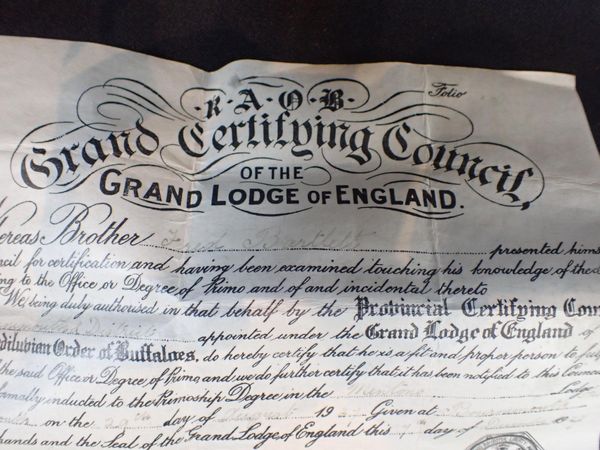 R.A.O.B.
Folio
Grand Certifying Council
OF THE
GRAND LODGE OF ENGLAND.
ereas Brother presented hims
ncil for certification and having been examined touching his knowledge of the
ng to the Office or Degree of Primo and of and incidental thereto
We being duly authorised in that behalf by the Provincial Certifying Coun
appointed under the Grand Lodge of England of
diluvian Order of Buffaloes, do hereby certify that he is a fit and proper person to
the said Office or Degree of Primo and we do further certify that it has been notified to this Council
ormally inducted to the Primoship Degree in the Lodge
on the day of August 19 Given at
hands and the Seal of the Grand Lodge of England this day of